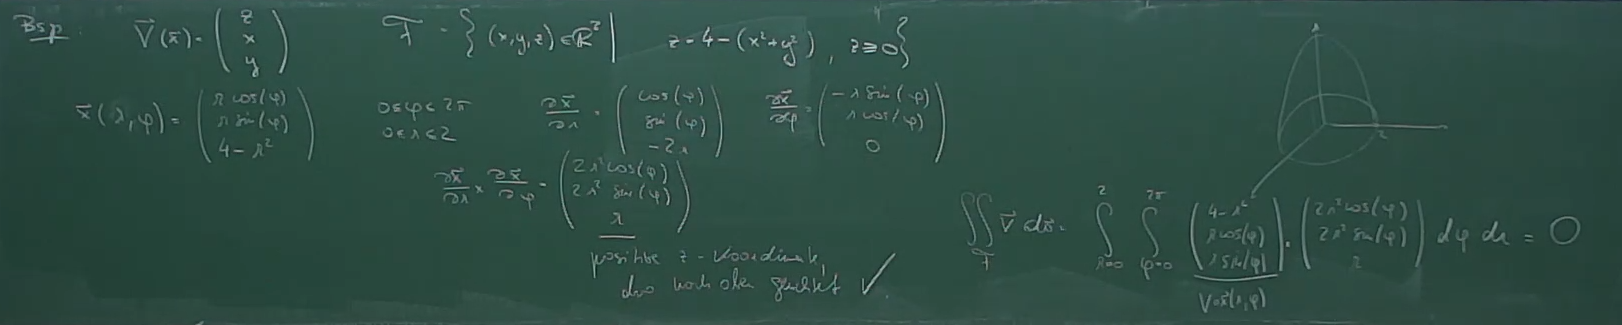 Bsp: V⃗(x⃗) = (z x y) F = { (x,y,z) ∈ ℝ³ | z = 4 − (x²+y²), z ≥ 0 }
x⃗(r,φ) = (r cos(φ) r sin(φ) 4 − r²) 0 ≤ φ ≤ 2π 0 ≤ r ≤ 2 ∂x⃗/∂r = (cos(φ) sin(φ) −2r) ∂x⃗/∂φ = (−r sin(φ) r cos(φ) 0)
∂x⃗/∂r × ∂x⃗/∂φ = (2r² cos(φ) 2r² sin(φ) r)
positive z-Koordinate,
also nach oben gerichtet ✓
2
∬_F V⃗ do⃗ = ∫_{r=0}^{2} ∫_{φ=0}^{2π} (4−r² r cos(φ) r sin(φ)) · (2r² cos(φ) 2r² sin(φ) r) dφ dr = 0
V∘x⃗(r,φ)